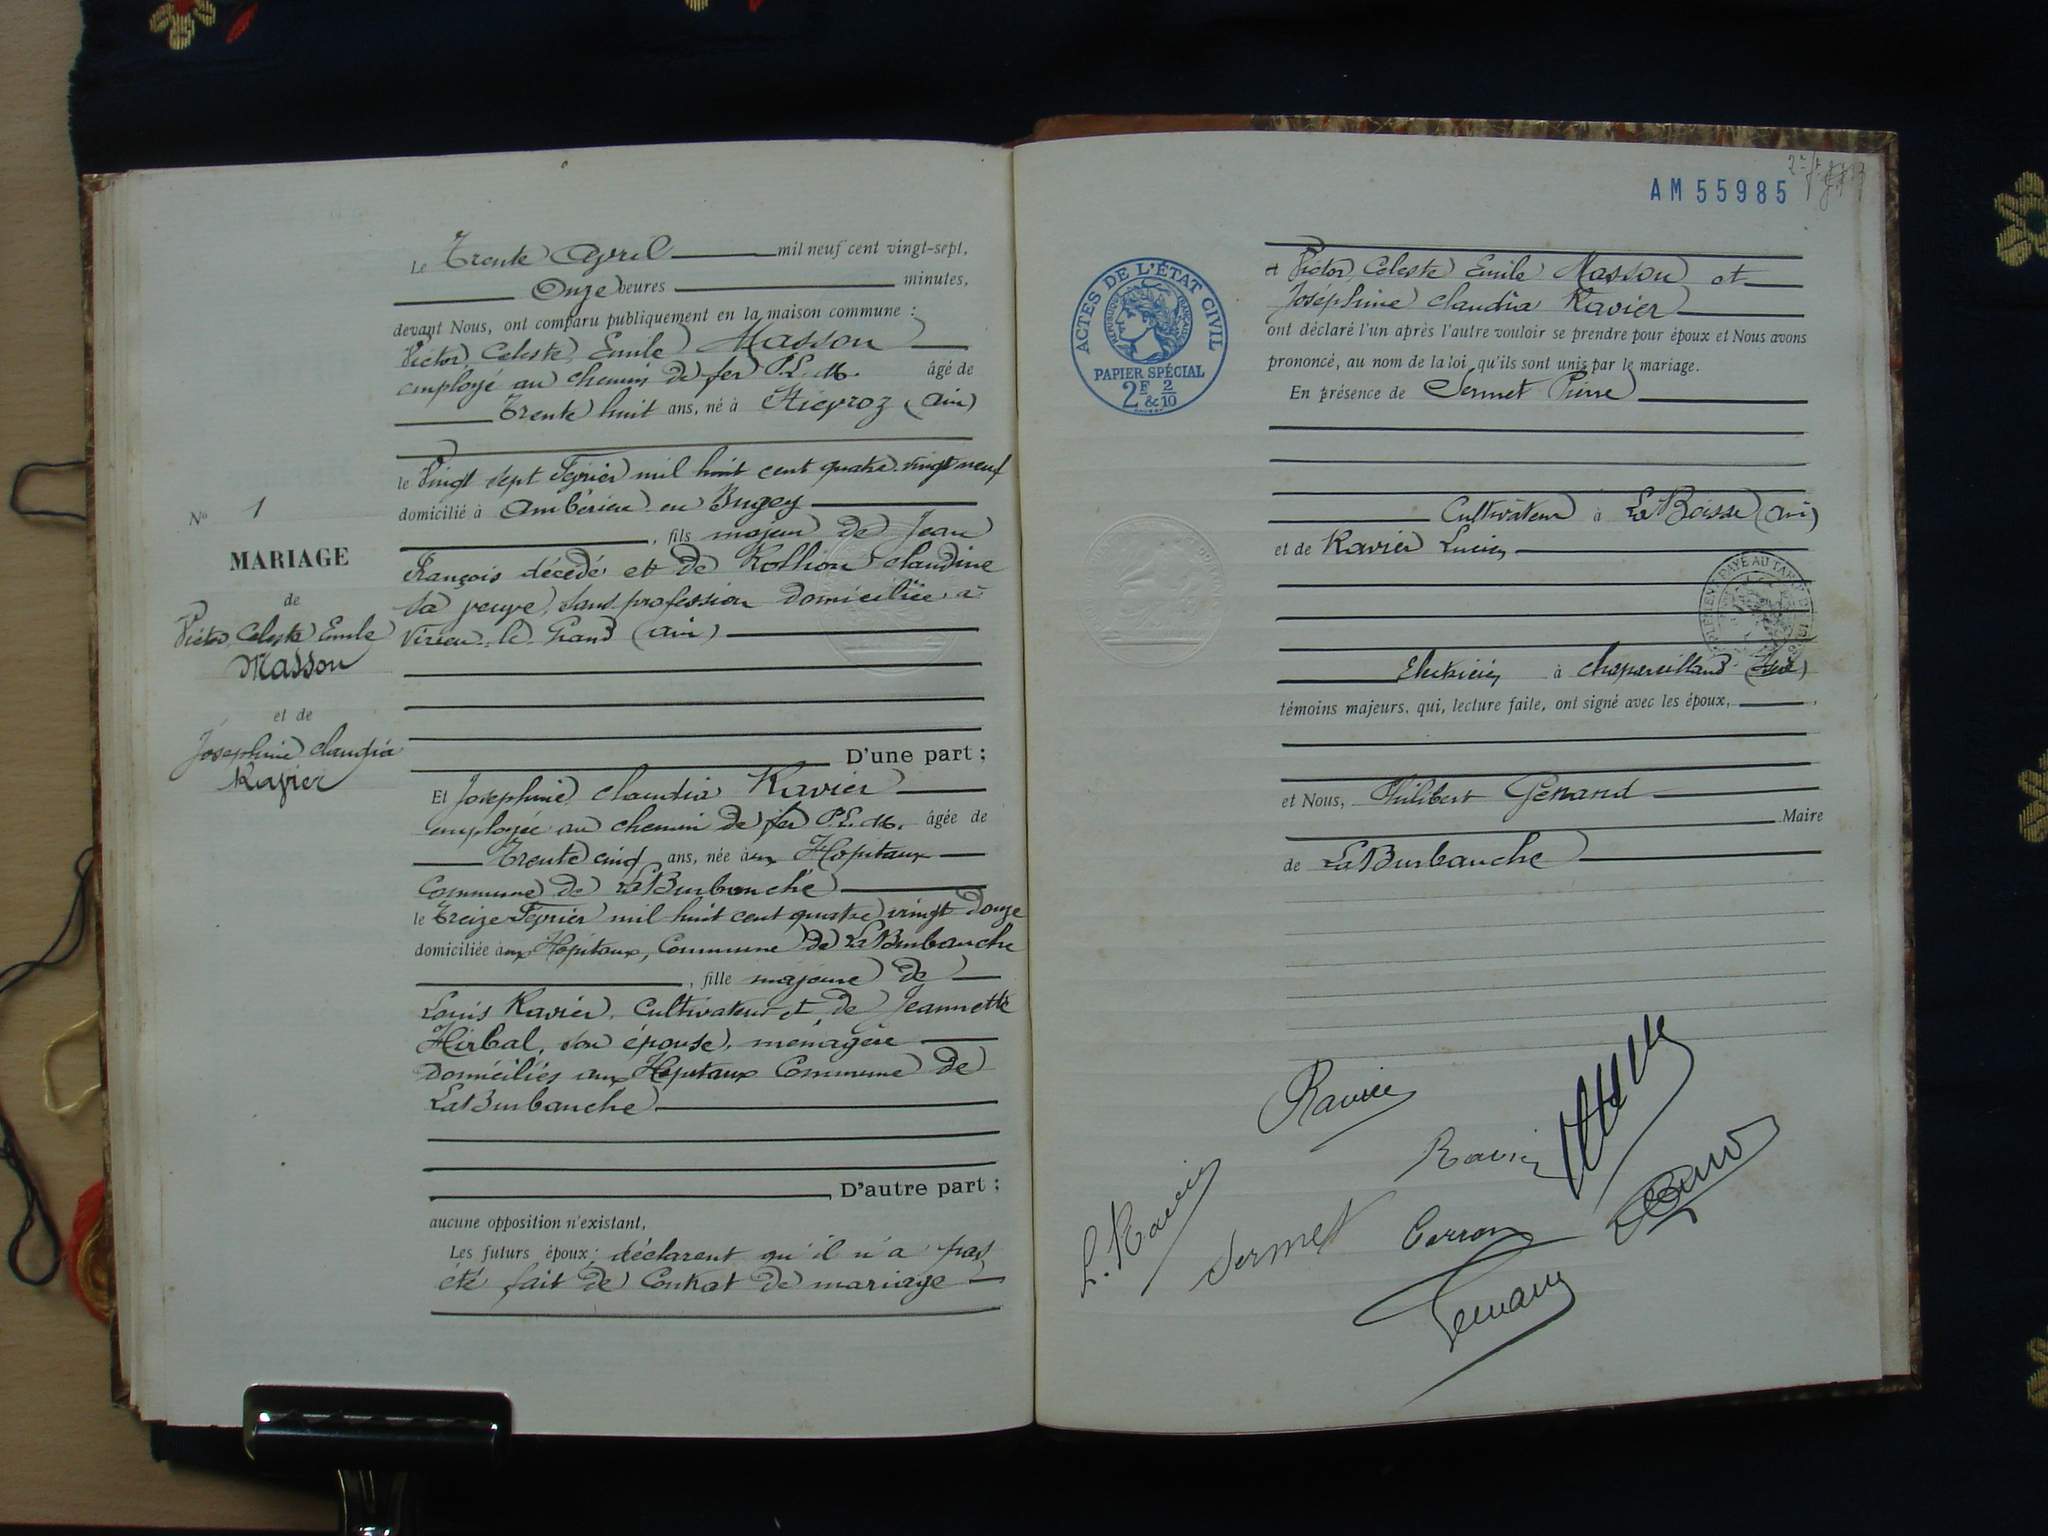 Le Trente Avril mil neuf cent vingt-sept,
Onze heures minutes,
devant Nous, ont comparu publiquement en la maison commune :
Victor Céleste Emile Masson
employé au chemin de fer P.L.M. âgé de
Trente huit ans, né à (Ain)
le Vingt sept Février mil huit cent quatre vingt neuf
domicilié à Ambérieu en Bugey
, fils majeur de Jean
François décédé et de Claudine
sa veuve, sans profession domiciliée à
Virieu-le-Grand (Ain)
D'une part ;
N° 1
MARIAGE
de
Victor Céleste Emile
Masson
et de
Joséphine Claudia
Ravier
Et Joséphine Claudia Ravier
employée au chemin de fer P.L.M. âgée de
Trente cinq ans, née aux Hôpitaux
Commune de La Burbanche
le Treize Février mil huit cent quatre vingt douze
domiciliée aux Hôpitaux, Commune de La Burbanche
, fille majeure de
Louis Ravier, Cultivateur et de Jeannette
Hirbal, son épouse, ménagère
domiciliés aux Hôpitaux Commune de
La Burbanche
D'autre part ;
aucune opposition n'existant,
Les futurs époux déclarent qu'il n'a pas
été fait de Contrat de mariage
AM 55985
ACTES DE L'ÉTAT CIVIL
RÉPUBLIQUE FRANÇAISE
PAPIER SPÉCIAL
2F & 2/10
et Victor Céleste Emile Masson et
Joséphine Claudia Ravier
ont déclaré l'un après l'autre vouloir se prendre pour époux et Nous avons
prononcé, au nom de la loi, qu'ils sont unis par le mariage.
En présence de Sermet Pierre
Cultivateur à La Boisse (Ain)
et de Ravier Lucien
Electricien à Chapareillan (Isère)
témoins majeurs, qui, lecture faite, ont signé avec les époux,
et Nous, Philibert Genand
Maire
de La Burbanche
Ravier
Ravier
L. Ravier
Sermet
Genand